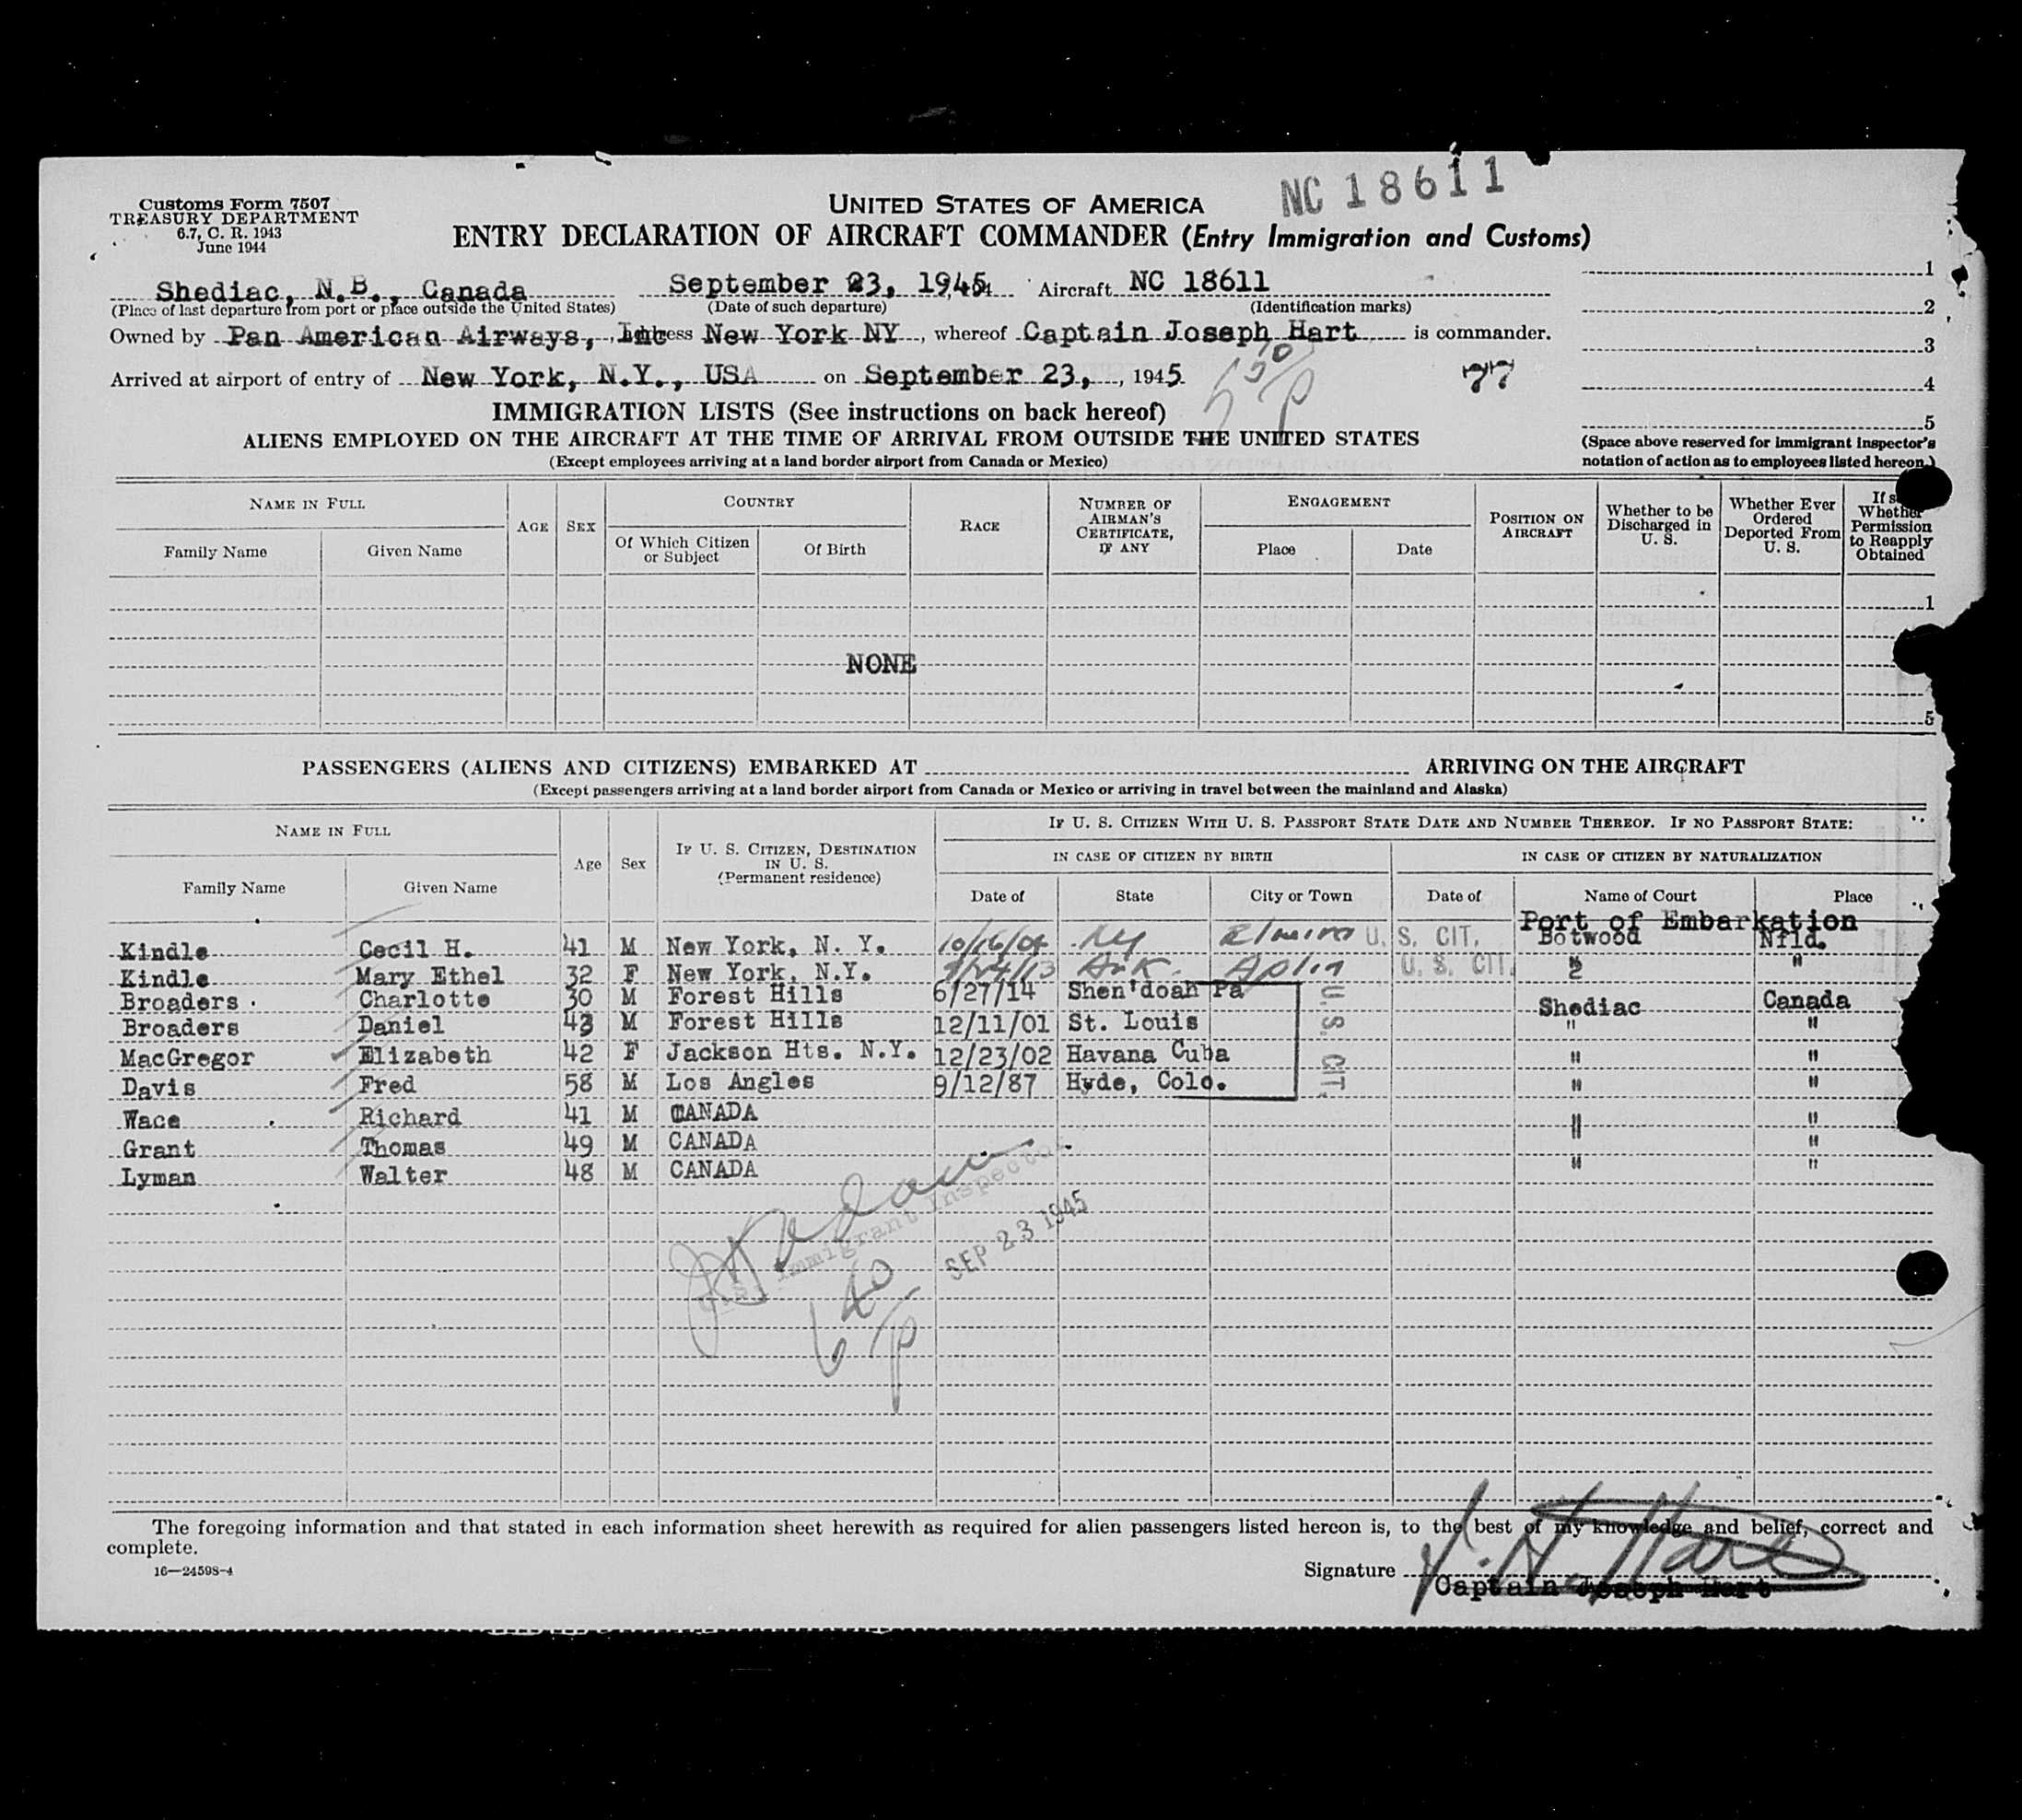 NC 18611
Customs Form 7507
TREASURY DEPARTMENT
6.7, C. R. 1943
June 1944
UNITED STATES OF AMERICA
ENTRY DECLARATION OF AIRCRAFT COMMANDER (Entry Immigration and Customs)
Shediac, N.B., Canada September 23, 1945 Aircraft NC 18611 1
(Place of last departure from port or place outside the United States) (Date of such departure) (Identification marks) 2
Owned by Pan American Airways, Inc New York NY, whereof Captain Joseph Hart is commander. 3
Arrived at airport of entry of New York, N.Y., USA on September 23, 1945 550/P 77 4
IMMIGRATION LISTS (See instructions on back hereof) 5
ALIENS EMPLOYED ON THE AIRCRAFT AT THE TIME OF ARRIVAL FROM OUTSIDE THE UNITED STATES
(Except employees arriving at a land border airport from Canada or Mexico)
(Space above reserved for immigrant inspector's
notation of action as to employees listed hereon.)
NAME IN FULL AGE SEX COUNTRY RACE NUMBER OF AIRMAN'S CERTIFICATE, IF ANY ENGAGEMENT POSITION ON AIRCRAFT Whether to be Discharged in U. S. Whether Ever Ordered Deported From U. S. If Whether Permission to Reapply Obtained
Family Name Given Name Of Which Citizen or Subject Of Birth Place Date
1
NONE
5
PASSENGERS (ALIENS AND CITIZENS) EMBARKED AT ARRIVING ON THE AIRCRAFT
(Except passengers arriving at a land border airport from Canada or Mexico or arriving in travel between the mainland and Alaska)
NAME IN FULL Age Sex IF U. S. CITIZEN, DESTINATION IN U. S. (Permanent residence) IF U. S. CITIZEN WITH U. S. PASSPORT STATE DATE AND NUMBER THEREOF. IF NO PASSPORT STATE:
IN CASE OF CITIZEN BY BIRTH IN CASE OF CITIZEN BY NATURALIZATION
Family Name Given Name Date of State City or Town Date of Name of Court Place
Port of Embarkation
Kindle Cecil H. 41 M New York, N. Y. 10/16/04 Ky Elmira U. S. CIT. Botwood Nfld.
Kindle Mary Ethel 32 F New York, N.Y. 9/24/13 Ark. Aplin U. S. CIT. " "
Broaders Charlotte 30 M Forest Hills 6/27/14 Shen'doah Pa Shediac Canada
Broaders Daniel 43 M Forest Hills 12/11/01 St. Louis " "
MacGregor Elizabeth 42 F Jackson Hts. N.Y. 12/23/02 Havana Cuba " "
Davis Fred 58 M Los Angles 9/12/87 Hyde, Colo. " "
U. S. CIT.
Wace Richard 41 M CANADA " "
Grant Thomas 49 M CANADA " "
Lyman Walter 48 M CANADA " "
U.S. Immigrant Inspector
SEP 23 1945
640/P
The foregoing information and that stated in each information sheet herewith as required for alien passengers listed hereon is, to the best of my knowledge and belief, correct and
complete.
16—24598-4
Signature J. H. Hart
Captain Joseph Hart